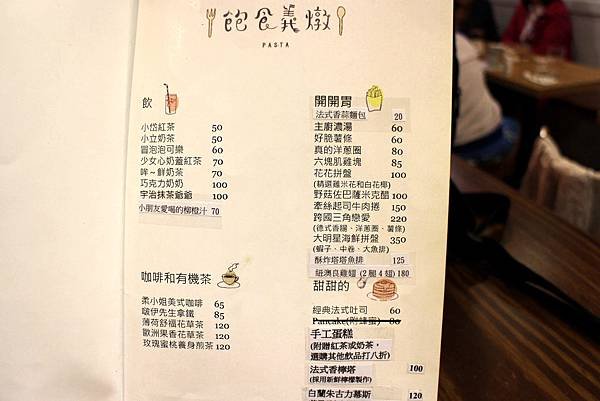 飽食義燉
PASTA
飲
小岱紅茶 50
小立奶茶 50
冒泡泡可樂 60
少女心奶蓋紅茶 70
哞~鮮奶茶 70
巧克力奶奶 100
宇治抹茶爺爺 100
小朋友愛喝的柳橙汁 70
咖啡和有機茶
柔小姐美式咖啡 65
啵伊先生拿鐵 85
薄荷舒福花草茶 120
歐洲果香花草茶 120
玫瑰蜜桃養身煎茶 120
開開胃
法式香蒜麵包 20
主廚濃湯 60
好脆薯條 60
真的洋蔥圈 80
六塊肌雞塊 85
花花拼盤 100
(精選雞米花和白花椰)
野菇佐巴薩米克醋 100
牽絲起司牛肉捲 150
跨國三角戀愛 220
(德式香腸、洋蔥圈、薯條)
大明星海鮮拼盤 350
(蝦子、中卷、大魚排)
酥炸塔塔魚排 125
紐澳良雞翅 (2 腿 4 翅) 180
甜甜的
經典法式吐司 60
Pancake(附蜂蜜) 80
手工蛋糕
(附贈紅茶或奶茶,
選購其他飲品打八折)
法式香檸塔 100
(採用新鮮檸檬製作)
白蘭朱古力慕斯 120